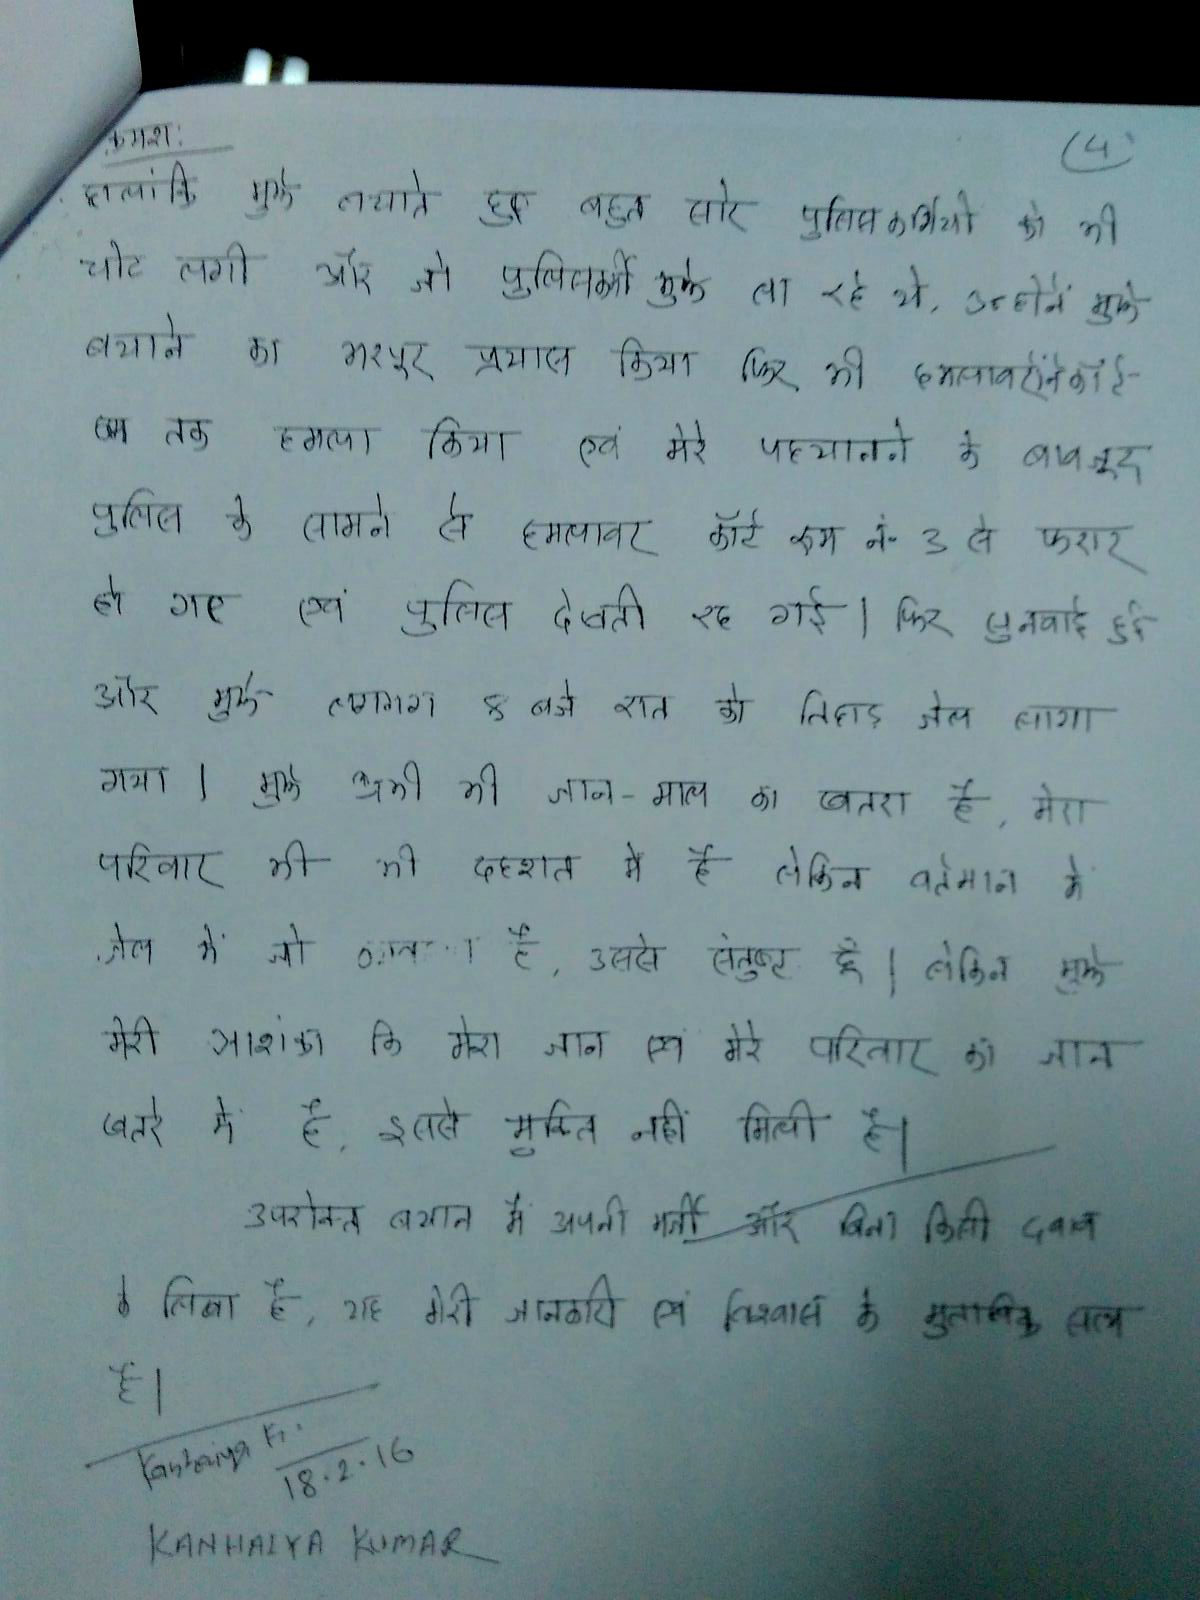 क्रमशः (4)
हालांकि मुझे बचाते हुए बहुत सारे पुलिसकर्मियों को भी
चोट लगी और जो पुलिसकर्मी मुझे ला रहे थे, उन्होनें मुझे
बचाने का भरपूर प्रयास किया फिर भी हमलावरों ने कोर्ट-
रूम तक हमला किया एवं मेरे पहचानने के बावजूद
पुलिस के सामने से हमलावर कोर्ट रूम नं- 3 से फरार
हो गए एवं पुलिस देखती रह गई। फिर सुनवाई हुई
और मुझे लगभग 8 बजे रात को तिहाड़ जेल लागा
गया। मुझे अभी भी जान-माल का खतरा है, मेरा
परिवार भी भी दहशत में है लेकिन वर्तमान में
जेल में जो है, उससे संतुष्ट हूँ। लेकिन मुझे
मेरी आशंका कि मेरा जान एवं मेरे परिवार का जान
खतरे में है, इससे मुक्ति नहीं मिली है।
उपरोक्त बयान मैं अपनी मर्जी और बिना किसी दबाव
के लिखा है, यह मेरी जानकारी एवं विश्वास के मुताबिक सत्य
है।
Kanhaiya K.
18.2.16
KANHAIYA KUMAR